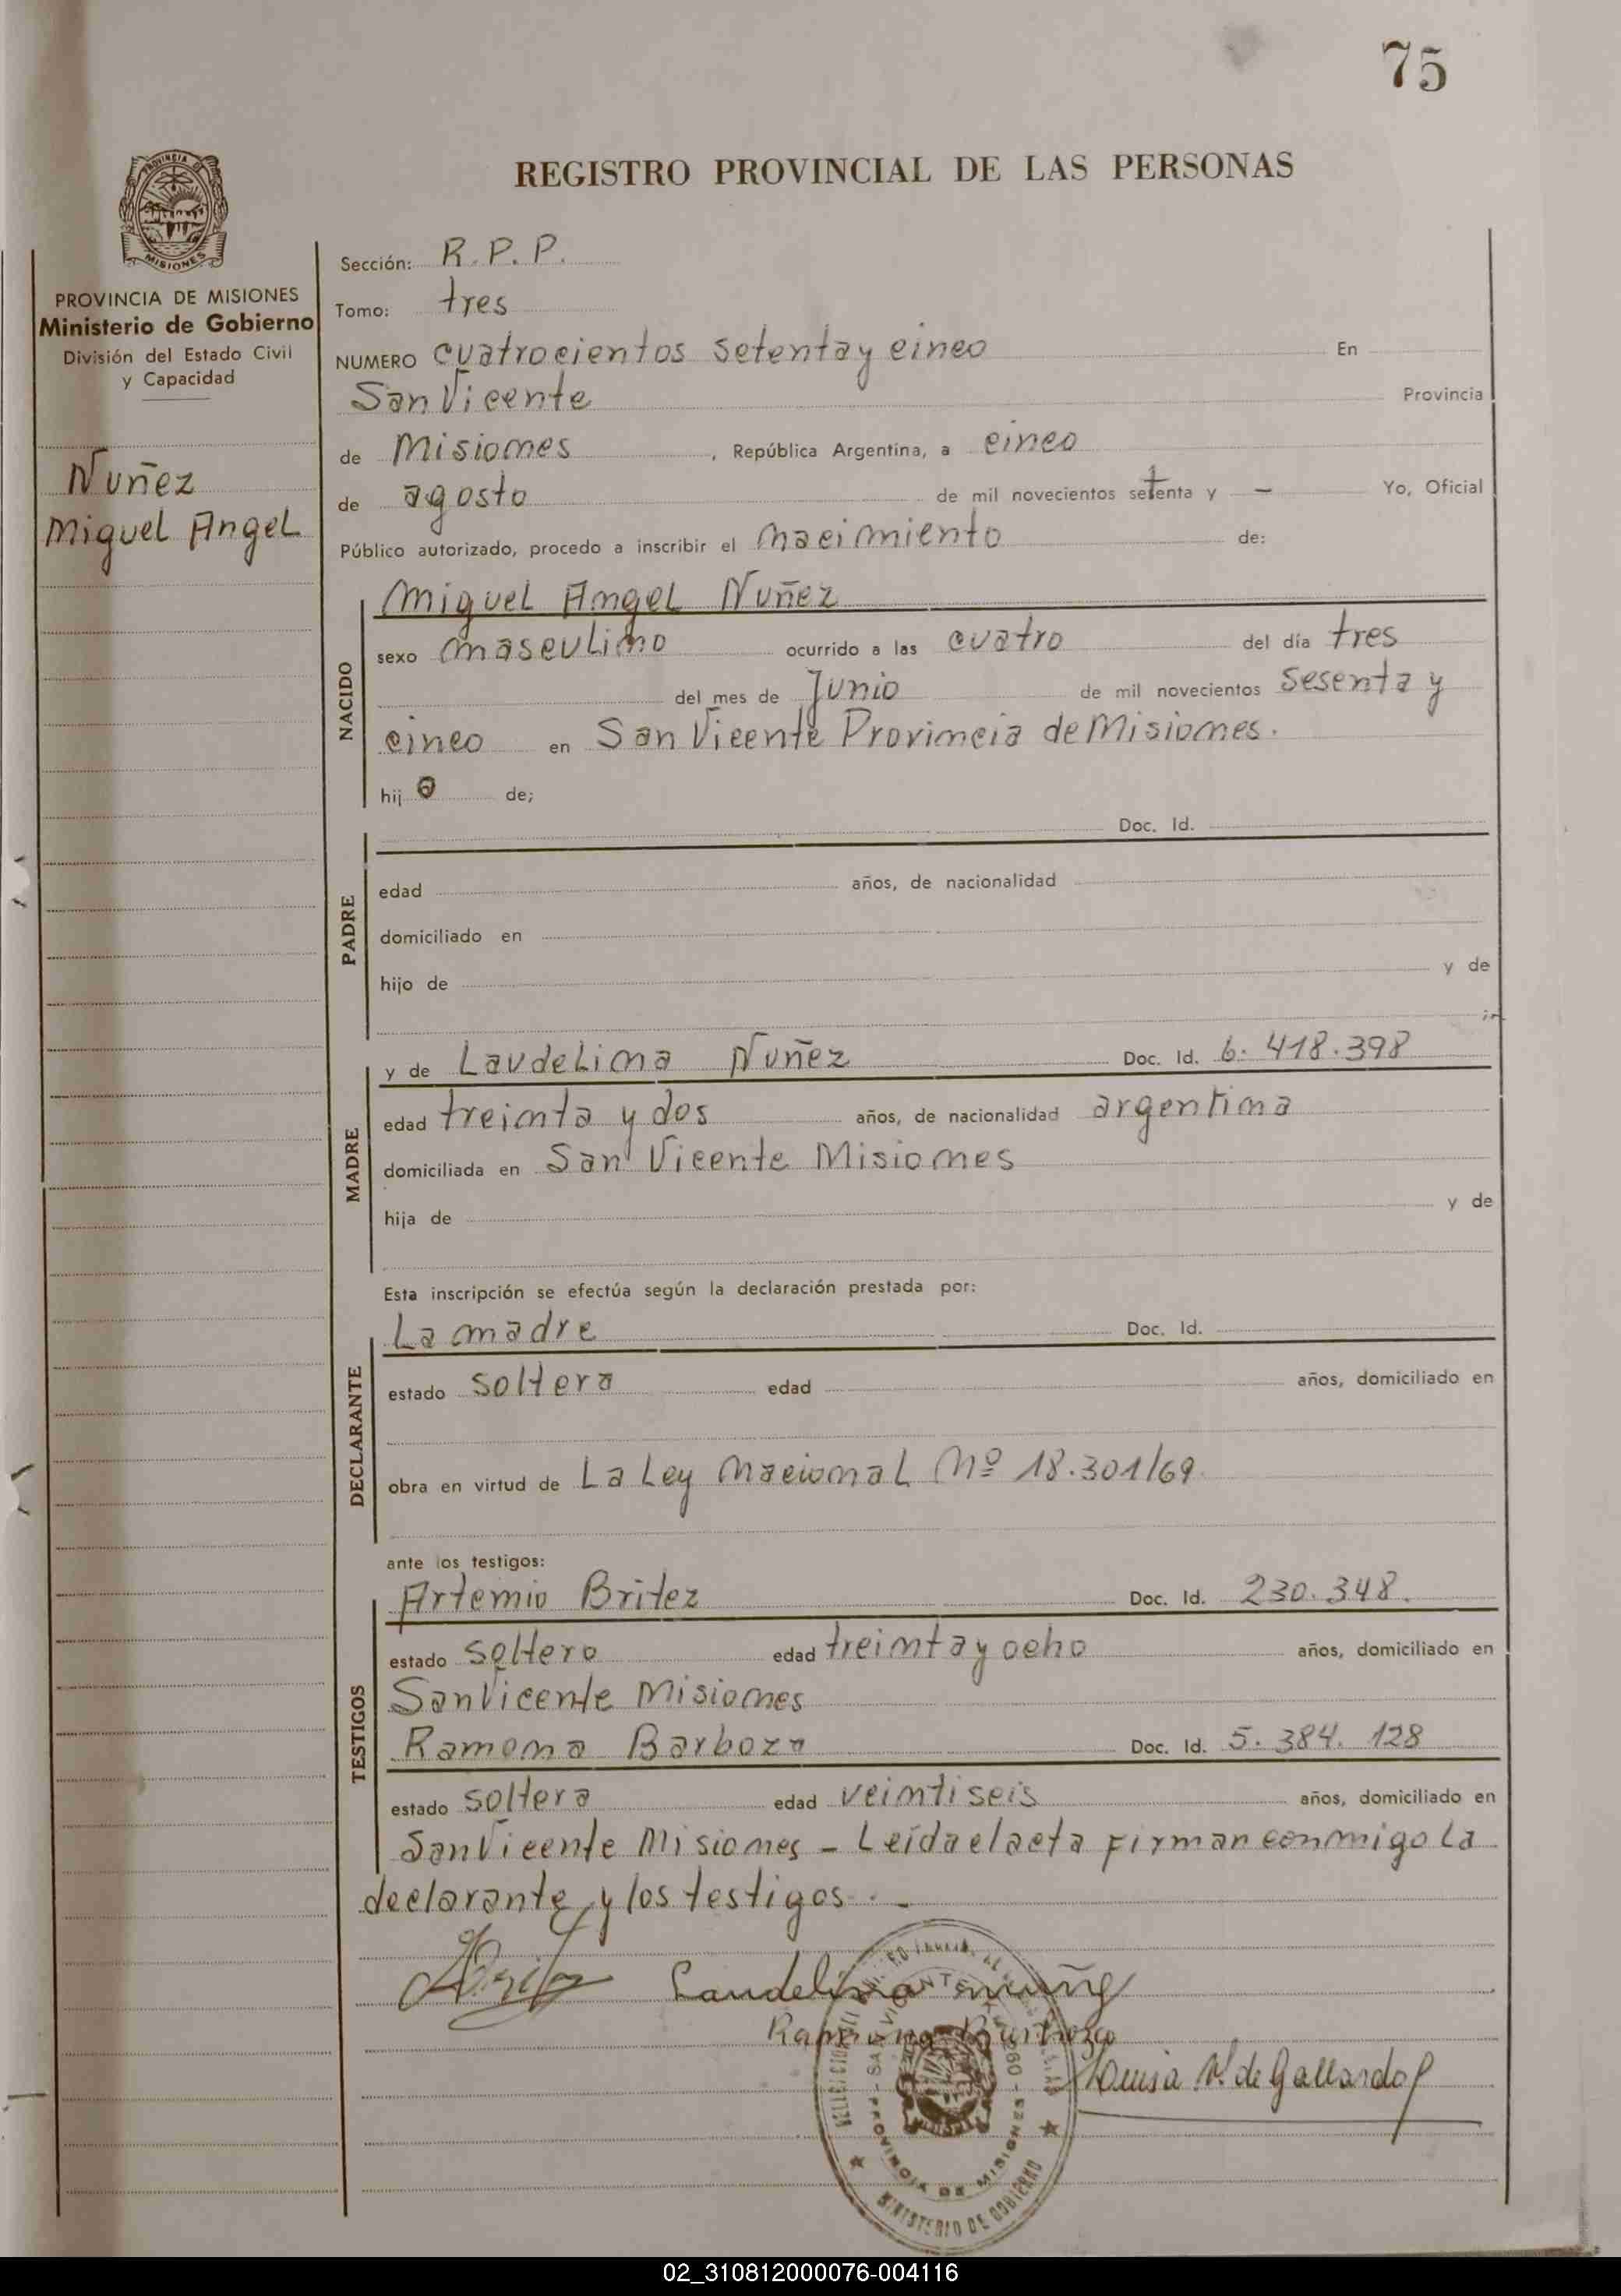 75
REGISTRO PROVINCIAL DE LAS PERSONAS
PROVINCIA DE
MISIONES
PROVINCIA DE MISIONES
Ministerio de Gobierno
División del Estado Civil
y Capacidad
Nuñez
Miguel Angel
Sección: R. P. P.
Tomo: tres
NUMERO cuatrocientos setenta y cinco En
San Vicente Provincia
de Misiones , República Argentina, a cinco
de agosto de mil novecientos setenta y – Yo, Oficial
Público autorizado, procedo a inscribir el nacimiento de:
NACIDO
Miguel Angel Nuñez
sexo masculino ocurrido a las cuatro del día tres
del mes de Junio de mil novecientos sesenta y
cinco en San Vicente Provincia de Misiones.
hij o de;
PADRE
Doc. Id.
edad años, de nacionalidad
domiciliado en
hijo de y de
MADRE
y de Laudelina Nuñez Doc. Id. 6.418.398
edad treinta y dos años, de nacionalidad argentina
domiciliada en San Vicente Misiones
hija de y de
Esta inscripción se efectúa según la declaración prestada por:
DECLARANTE
La madre Doc. Id.
estado soltera edad años, domiciliado en
obra en virtud de La Ley Nacional Nº 18.301/69.
ante los testigos:
TESTIGOS
Artemio Britez Doc. Id. 230.348.
estado soltero edad treinta y ocho años, domiciliado en
San Vicente Misiones
Ramona Barboza Doc. Id. 5.384.128
estado soltera edad veintiseis años, domiciliado en
San Vicente Misiones – Leída el acta firman conmigo la
declarante y los testigos. –
Laudelina
Ramona
Luisa V. de Gallardo
SAN VICENTE
PROVINCIA DE MISIONES
MINISTERIO DE GOBIERNO
02_310812000076-004116